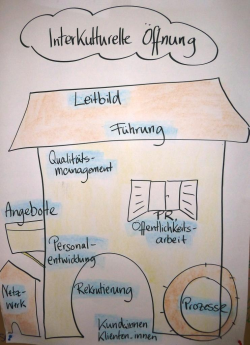 Interkulturelle Öffnung
Leitbild
Führung
Qualitäts-
management
Angebote
PR,
Öffentlichkeits-
arbeit
Personal-
entwicklung
Rekrutierung
Netz-
werk
Prozesse
Kund:innen
Klienten.innen